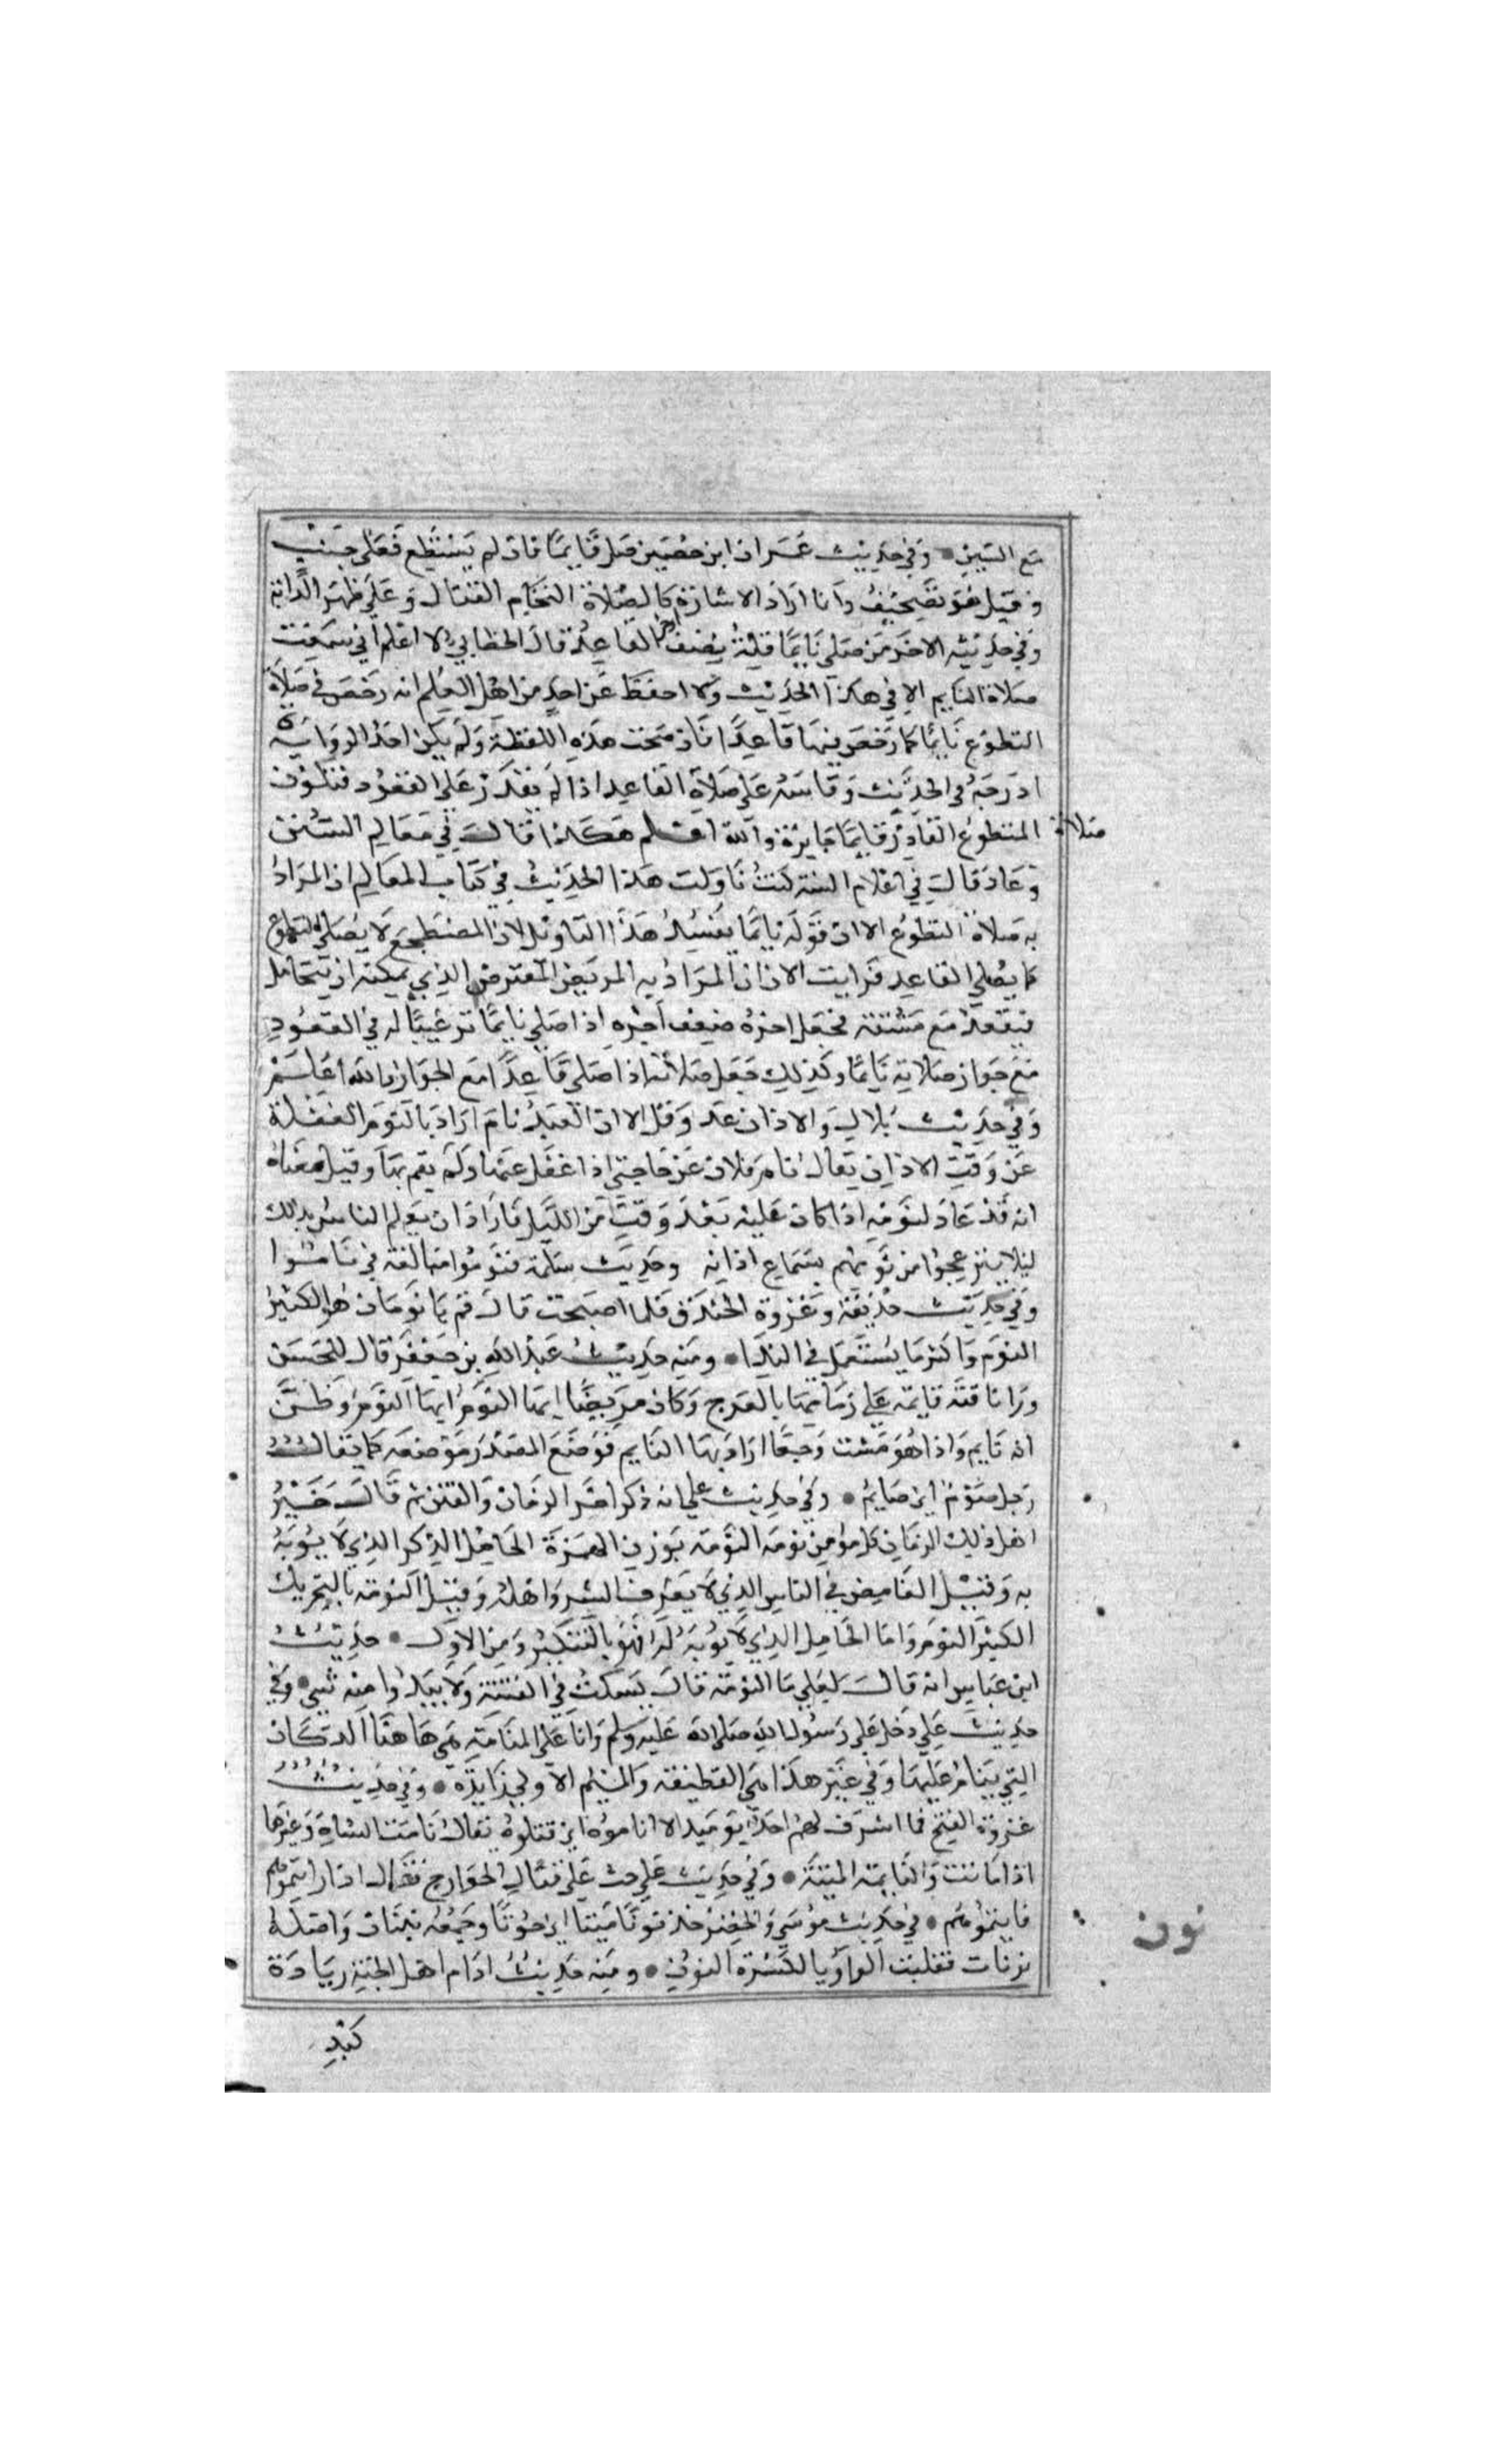 مع السين • وفي حديث عمران ابن حصين صل قايما فان لم يستطع فعلى جنب
وقيل هو تصحيف وانا اراد الاشارة كالصلاة التحام القتال وعلى ظهر الدابة
وفي حديثه الاخر من صلى نايما فله نصف اجر القاعد قال الخطابي لا اعلم اني سمعت
صلاة النايم الا في هذا الحديث ولا احفظ عن احد من اهل العلم انه رخص في صلاة
التطوع نايما كما رخص فيها قاعدا فان صحت هذه اللفظة ولم يكن احد الرواة
ادرجه في الحديث وقاسه على صلاة القاعد اذا لم يقدر على القعود فتكون
صلاة المتطوع القادر قايما جايزة والله اعلم هكذا قال في معالم السنن
وعاد قال في اعلام السنه كنت تاولت هذا الحديث في كتاب المعالم ان المراد
به صلاة التطوع الا ان قوله نايما يفسد هذا التاويل لان المضطجع لا يصلي التطوع
كما يصلي القاعد فرايت الان ان المراد به المريض المفترض الذي يمكنه ان يتحامل
فيقعد مع مشقة فجعل اجره ضعف اجره اذا صلى نايما ترغيبا له في القعود
مع جواز صلاته نايما وكذلك جعل صلاته اذا صلى قاعدا مع الجواز والله اعلم
وفي حديث بلال والاذان عد وقل الا ان العبد نام اراد بالنوم الغفلة
عن وقت الاذان يقال نام فلان عن حاجتي اذا غفل عنها ولم يقم بها وقيل معناه
انه قد عاد لنومه اذا كان عليه بعد وقت من الليل فاراد ان يعلم الناس بذلك
ليلا ينزعجوا من نومهم بسماع اذانه وحديث سلمة فنوموا مبالغة في ناموا
وفي حديث حذيفة وغزوة الخندق فلما اصبحت قال قم يا نومان هو الكثير
النوم واكثر ما يستعمل في الندا • ومنه حديث عبد الله بن جعفر قال للحسن
وراى ناقته قايمة على زمامها بالعرج وكان مريضا ايها النوم ايها النوم وظن
انه نايم واذا هو مثبت وجعا اراد بها النايم فوضع المصدر موضعه كما يقال
رجل صوم اي صايم • وفي حديث علي انه ذكر اخر الزمان والفتن ثم قال خير
اهل ذلك الزمان كل مؤمن نومه النومة بوزن الهمزة الخامل الذكر الذي لا يؤبه
به وقيل الغامض في الناس الذي لا يعرف الشر واهله وقيل النومة بالتحريك
الكثير النوم واما الخامل الذي لا يؤبه له فهو بالتسكين ومن الاول • حديث
ابن عباس انه قال لعلي ما النومة قال يسكت في الفتنة ولا يبدوا منه شي • وفي
حديث علي دخل على رسول الله صلى الله عليه وسلم وانا على المنامة هي هاهنا الدكان
التي ينام عليها وفي غير هذا هي القطيفة والميم الاولى زايدة • وفي حديث
غزوة الفتح فما اشرف لهم احد يوميذ الا اناموه اي قتلوه يقال نامت الشاة وغيرها
اذا ماتت والنايمة الميتة • وفي حديث علي حث على قتال الخوارج فقال اذا رايتموهم
فانيموهم • في حديث موسى والخضر خذ نونا ميتا اي حوتا وجمعه نينان واصله
نونان فقلبت الواو يا لكسرة النون • ومنه حديث ادام اهل الجنة زيادة
نون
كبد